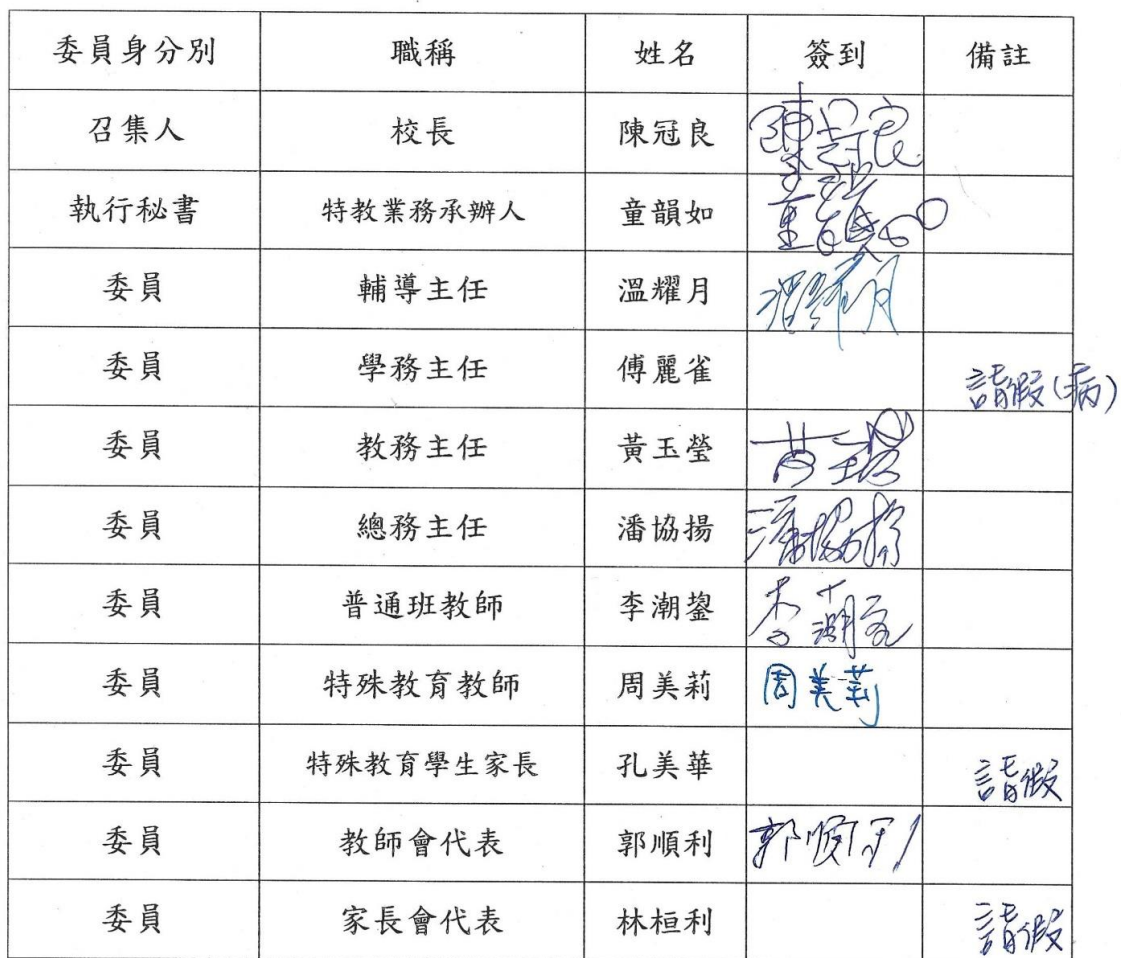 委員身分別 職稱 姓名 簽到 備註
召集人 校長 陳冠良 陳冠良
執行秘書 特教業務承辦人 童韻如 童韻如
委員 輔導主任 溫耀月 溫耀月
委員 學務主任 傅麗雀 請假(病)
委員 教務主任 黃玉瑩 黃玉瑩
委員 總務主任 潘協揚 潘協揚
委員 普通班教師 李潮鋆 李潮鋆
委員 特殊教育教師 周美莉 周美莉
委員 特殊教育學生家長 孔美華 請假
委員 教師會代表 郭順利 郭順利
委員 家長會代表 林桓利 請假